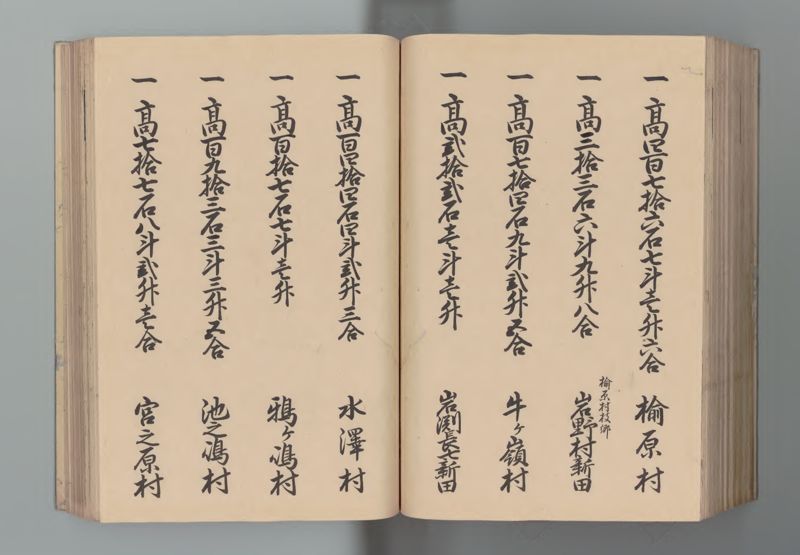 一高四百七拾六石七斗壱升六合 楡原村
一高三拾三石六斗九升八合 楡原村枝郷 岩野村新田
一高百七拾四石九斗弐升五合 牛ヶ嶺村
一高弐拾弐石壱斗壱升 岩渕長七新田
一高百四拾四石四斗弐升三合 水澤村
一高百拾七石七斗壱升 鴉ヶ嶋村
一高百九拾三石三斗三升五合 池之嶋村
一高七拾七石八斗弐升壱合 宮之原村